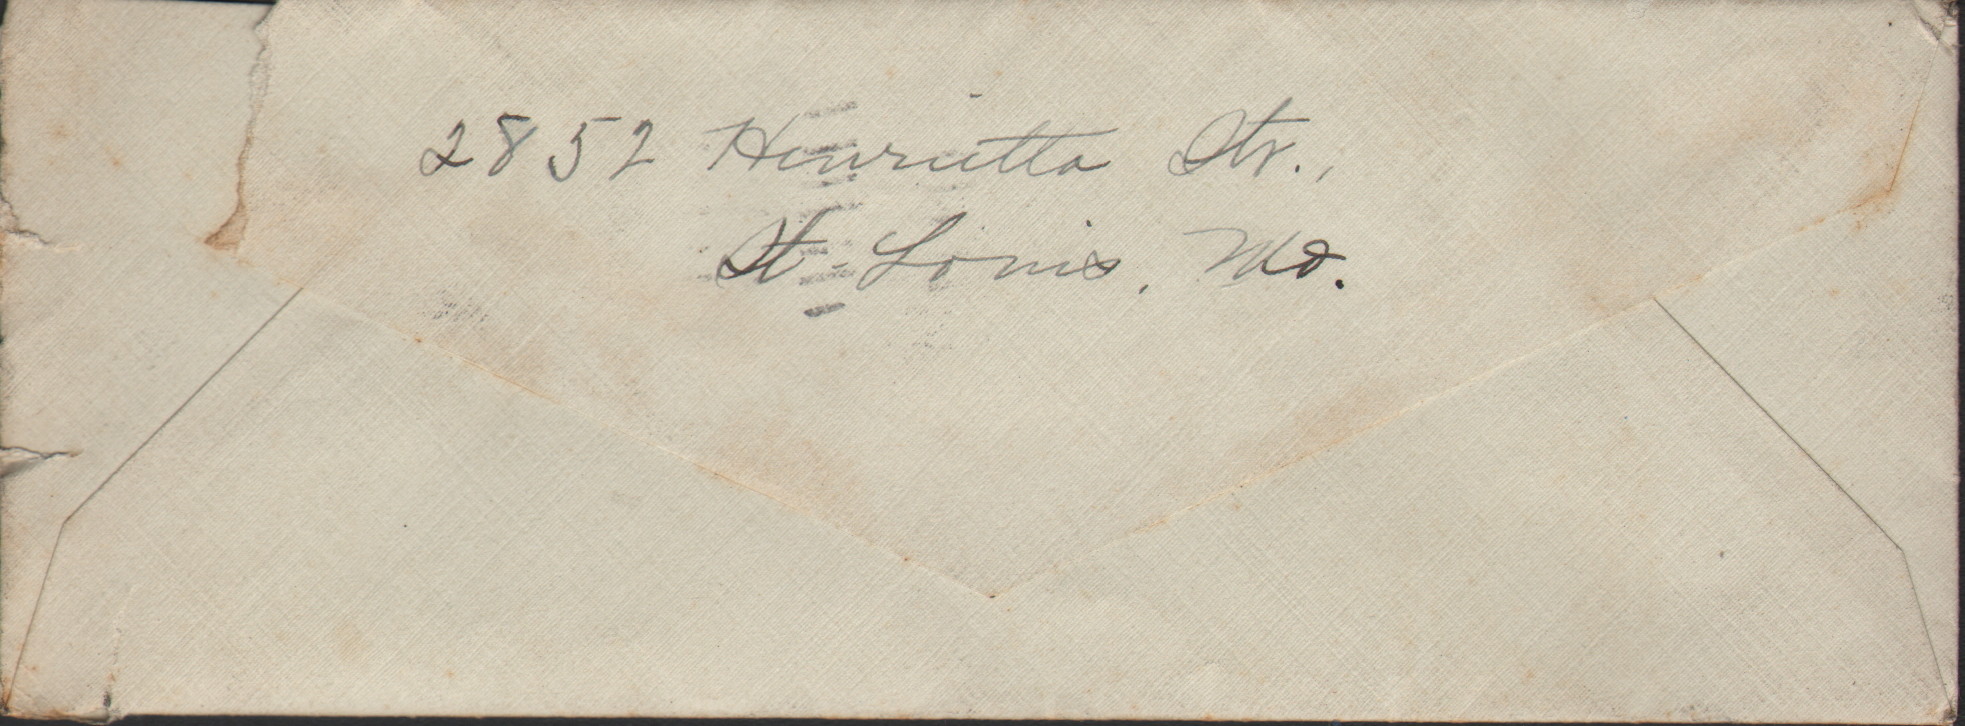 2852 Henrietta Str.,
St. Louis, Mo.